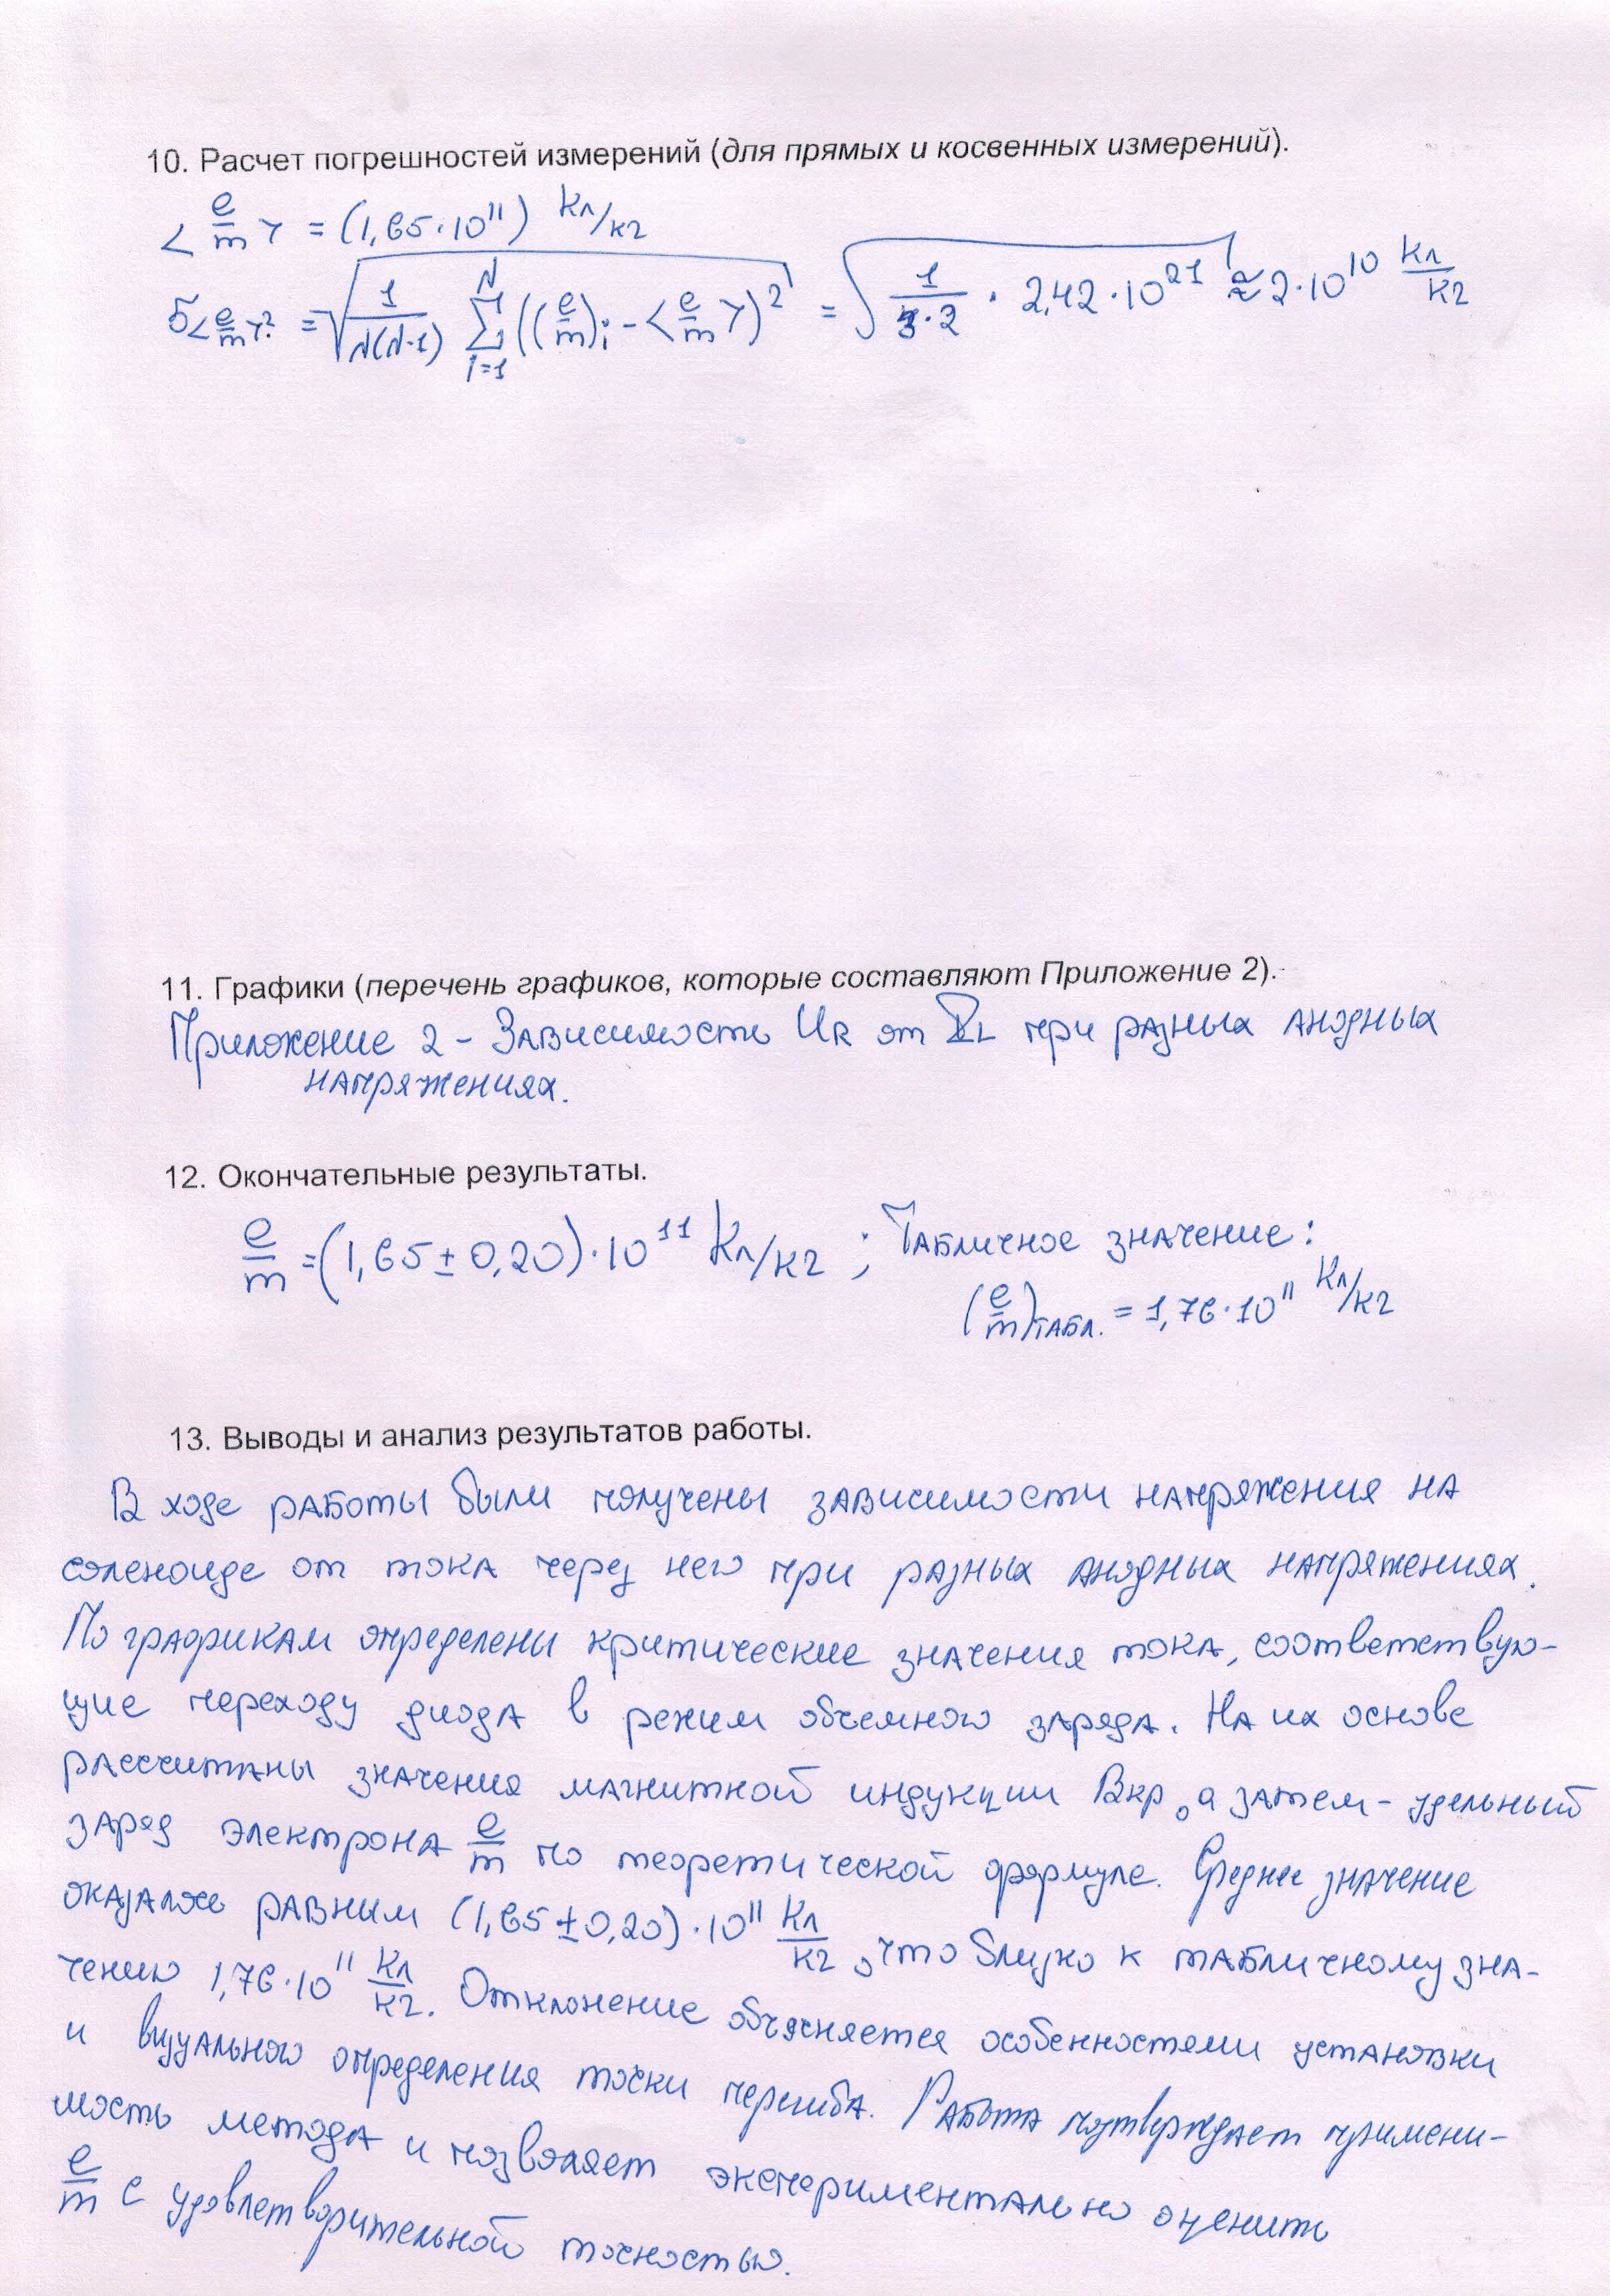 10. Расчет погрешностей измерений (для прямых и косвенных измерений).
<e/m> = (1,65·10¹¹) Кл/кг
σ<e/m>² = √(1/(N(N-1)) Σ_{i=1}^{N} ((e/m)ᵢ - <e/m>)²) = √(1/(3·2) · 2,42·10²¹) ≈ 2·10¹⁰ Кл/кг
11. Графики (перечень графиков, которые составляют Приложение 2).
Приложение 2 - Зависимость U_R от I_L при разных анодных
напряжениях.
12. Окончательные результаты.
e/m = (1,65 ± 0,20)·10¹¹ Кл/кг ; Табличное значение:
(e/m)табл. = 1,76·10¹¹ Кл/кг
13. Выводы и анализ результатов работы.
В ходе работы были получены зависимости напряжения на
соленоиде от тока через него при разных анодных напряжениях.
По графикам определены критические значения тока, соответствую-
щие переходу диода в режим объемного заряда. На их основе
рассчитаны значения магнитной индукции Bкр, а затем - удельный
заряд электрона e/m по теоретической формуле. Среднее значение
оказалось равным (1,65 ± 0,20)·10¹¹ Кл/кг, что близко к табличному зна-
чению 1,76·10¹¹ Кл/кг. Отклонение объясняется особенностями установки
и визуального определения точки перегиба. Работа подтверждает примени-
мость метода и позволяет экспериментально оценить
e/m с удовлетворительной точностью.